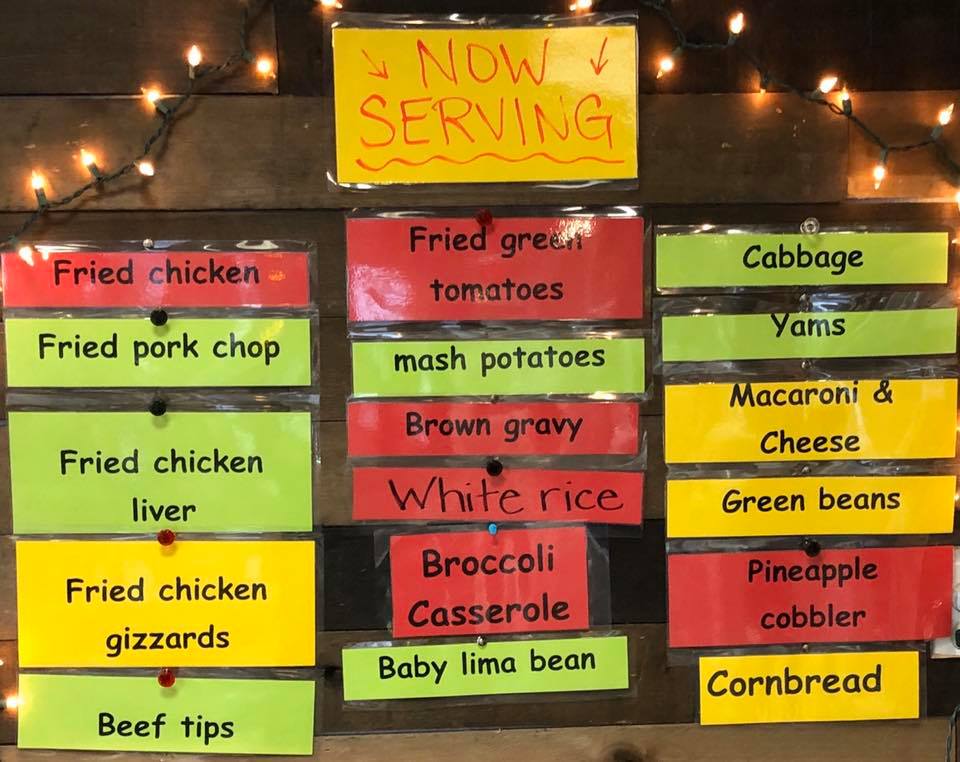 NOW
SERVING
Fried chicken
Fried pork chop
Fried chicken
liver
Fried chicken
gizzards
Beef tips
Fried green
tomatoes
mash potatoes
Brown gravy
White rice
Broccoli
Casserole
Baby lima bean
Cabbage
Yams
Macaroni &
Cheese
Green beans
Pineapple
cobbler
Cornbread